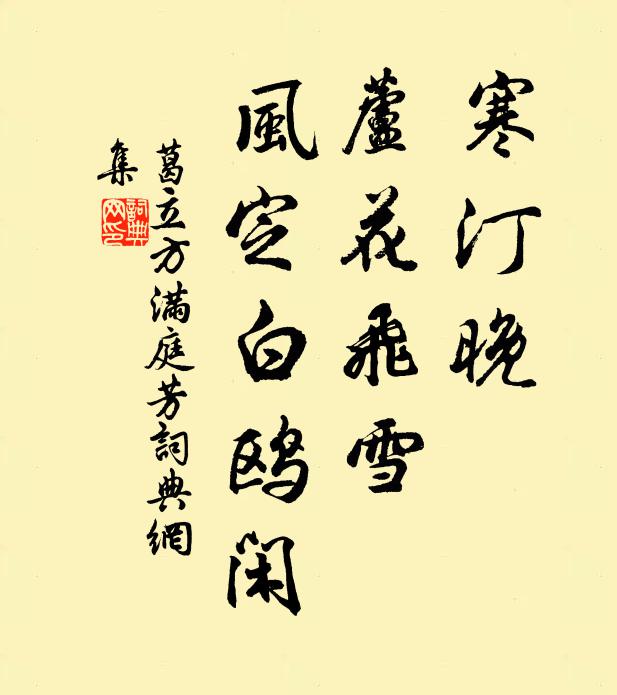 寒汀晚
蘆花飛雪
風定白鷗閑
葛立方滿庭芳詞典網
集
詞典网印